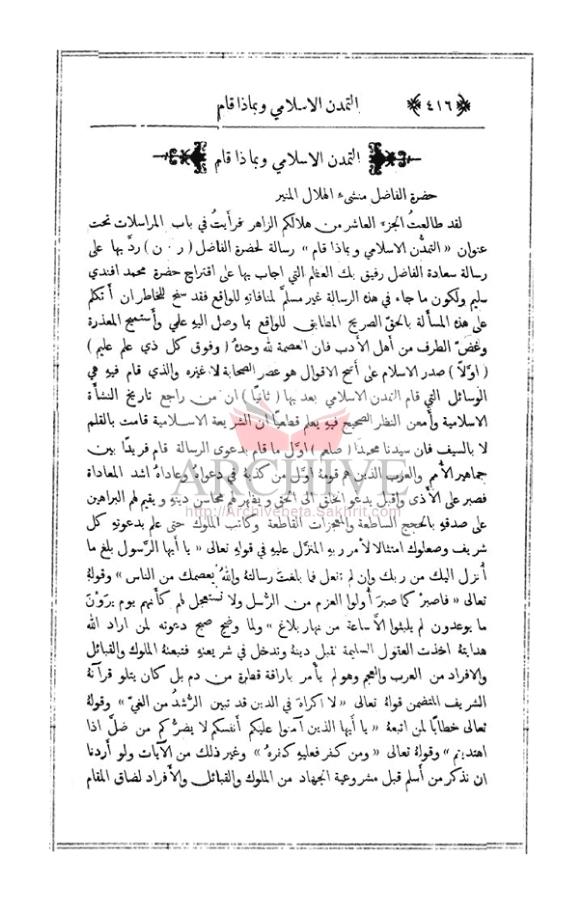 التمدن الاسلامي وبماذا قام ﴿٤١٦﴾
التمدن الاسلامي وبماذا قام
حضرة الفاضل منشىء الهلال المنير
لقد طالعتُ الجزء العاشر من هلالكم الزاهر فرأيتُ في باب المراسلات تحت
عنوان « التمدُّن الاسلامي وبماذا قام » رسالة لحضرة الفاضل ( ر ٠ ن ) ردَّ بها على
رسالة سعادة الفاضل رفيق بك العظم التي اجاب بها على اقتراح حضرة محمد افندي
سليم ولكون ما جاء في هذه الرسالة غير مسلَّم لمنافاته للواقع فقد سنح للخاطر ان أتكلم
على هذه المسألة بالحقّ الصريح المطابق للواقع بما وصل اليه علمي وأستميح المعذرة
وغضّ الطرف من أهل الأدب فان العصمة لله وحدهُ ( وفوق كل ذي علم عليم )
( اوَّلاً ) صدر الاسلام على أصح الاقوال هو عصر الصحابة لا غيره والذي قام فيه هي
الوسائل التي قام التمدن الاسلامي بعد بها ( ثانياً ) ان من راجع تاريخ النشأة
الاسلامية وأمعن النظر الصحيح فيه يعلم قطعياً ان الشريعة الاسلامية قامت بالقلم
لا بالسيف فان سيدنا محمداً ( صلعم ) اوَّل ما قام بدعوى الرسالة قام فريداً بين
جماهير الأمم والعرب الذين هم قومهُ اوَّل من كذبهُ في دعواهُ وعاداهُ اشد المعاداة
فصبر على الأذى وأقبل يدعو الخلق الى الحق و يظهر لهم محاسن دينهِ و يقيم لهم البراهين
ARCHIVE
http://Archivebeta.Sakhrit.com
على صدقهِ بالحجج الساطعة والمعجزات القاطعة وكاتب الملوك حتى علم بدعوتهِ كل
شريف وصعلوك امتثالاً لأمر ربهِ المنزل عليهِ في قولهِ تعالى « يا أيها الرَّسول بلغ ما
أُنزل اليك من ربك وإن لم تفعل فما بلغتَ رسالتهُ واللهُ يعصمك من الناس » وقولهُ
تعالى « فاصبرْ كما صبرَ أُولوا العزم من الرُّسل ولا تستعجل لهم كأنهم يوم يرَوْن
ما يوعدون لم يلبثوا الاَّ ساعة من نهار بلاغ » ولما وضح صبح دعوته لمن اراد الله
هدايتهُ اخذت العقول السليمة تقبل دينهُ وتدخل في شريعتهِ فتبعتهُ الملوك والقبائل
والافراد من العرب والعجم وهو لم يأمر باراقة قطرة من دم بل كان يتلو قرآنهُ
الشريف المتضمن قولهُ تعالى « لا اكراهَ في الدين قد تبين الرُّشدُ من الغيّ » وقولهُ
تعالى خطاباً لمن اتبعهُ « يا أيها الذين آمنوا عليكم أنفسكم لا يضرُّكم من ضلَّ اذا
اهتديتم » وقولهُ تعالى « ومن كفر فعليهِ كفرهُ » وغير ذلك من الآيات ولو أردنا
ان نذكر من أسلم قبل مشروعية الجهاد من الملوك والقبائل والأفراد لضاق المقام